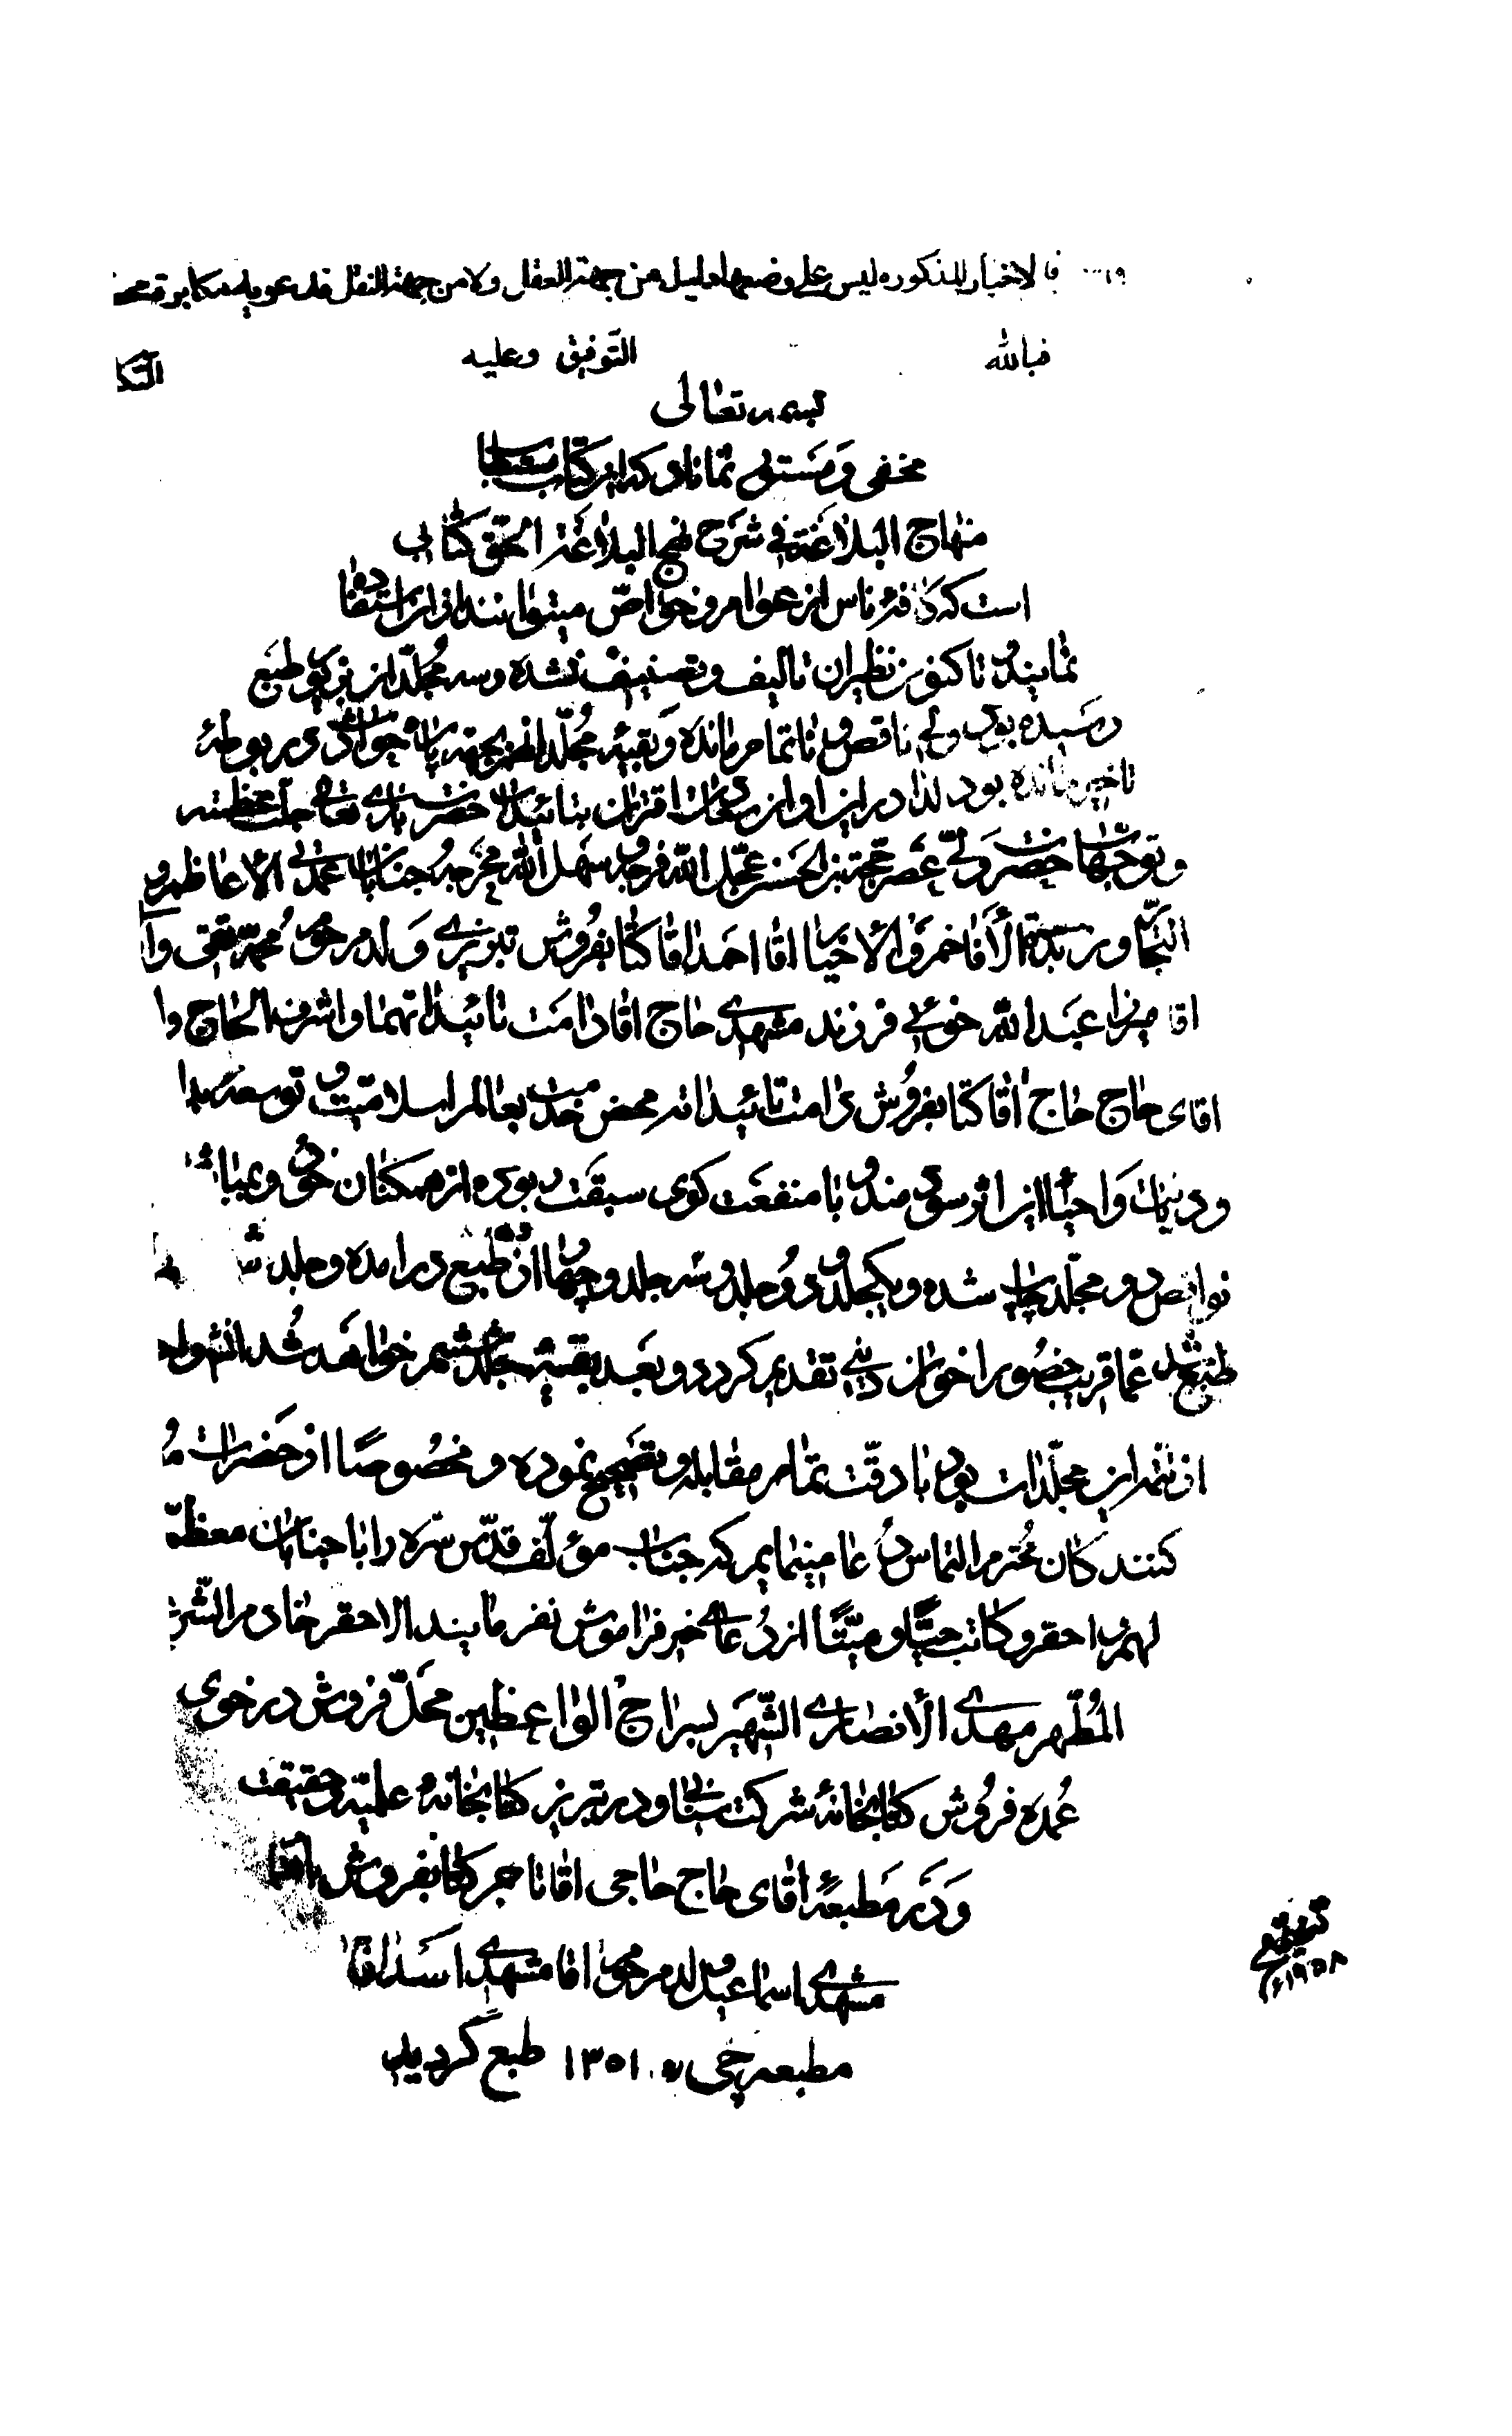 فالاخبار المذكوره ليس على وضعها دليل من جهة العقل ولا من جهة النقل
فبالله التوفيق وعليه التكلا
بسمه تعالى
مخفی و مستور نماناد که این کتاب مستطاب
منهاج البلاغة فی شرح نهج البلاغة الحق کتابی
است که کافهٔ ناس از عوام و خواص میتوانند از آن استفاده
نمایند و تاکنون نظیر آن تالیف و تصنیف نشده و سه مجلد از بزیور طبع
رسیده بود ولی ناقص و ناتمام مانده و بقیهٔ مجلدات بجهة پاره حوادث در بوطهٔ
تاخیر مانده بود لذا در این اوان سعادت اقتران بتائیدات حضرت باری تعالی جلت عظمته
و توجهات حضرت ولی عصر حجة بن الحسن عجل الله فرجه و سهل الله مخرجه جنابان عمدتی الاعاظم و
التجار و زبدة الأفاخم و الاخیار اقا احمد اقا کتابفروش تبریزی ولد مرحوم محمد تقی و
اقا میرزا عبد الله خوئی فرزند مشهدی حاج اقا دامت تائیداتهما و اشرف الحاج
اقای حاج حاج اقا کتابفروش دامت تائیداته محض خدمت بعالم اسلامیت و توسعه
و دینیات و احیاء این اثر سودمند و با منفعت کوی سبقت ربوده از همکنان خود
نواقص دو مجلد چاپ شده و یکجلد و دو جلد و سه جلد و چهار از طبع در امده و جلد
طبع شد عما قریب بحضور اخوان دینی تقدیم کردد و بعد بقیهٔ جلد ششم خواهد شد انشاء
از تتمه این مجلدات بود با دقت تمام مقابله و تصحیح نموده و مخصوصا از حضرات
کنندکان محترم التماس دعا مینمایم که جناب مؤلف قدس سره را با جنابان معظم
لهم و احقر و کاتب حیا و میتا از دعای خیر فراموش نفرمایند الاحقر خادم الشرع
المطهر مهدی الأنصاری الشهیر بسراج الواعظین محل فروش در خوی
عمده فروش کتابخانهٔ شرکت سینا و در تبریز کتابخانهٔ علمیه و حقیقت
و در مطبعهٔ اقای حاج حاجی اقا تاجر کتابفروش
مشهدی اسماعیل ولد مرحوم اقا مشهدی اسد اقا
مطبعه چی ۱۳۵۱ طبع گردید